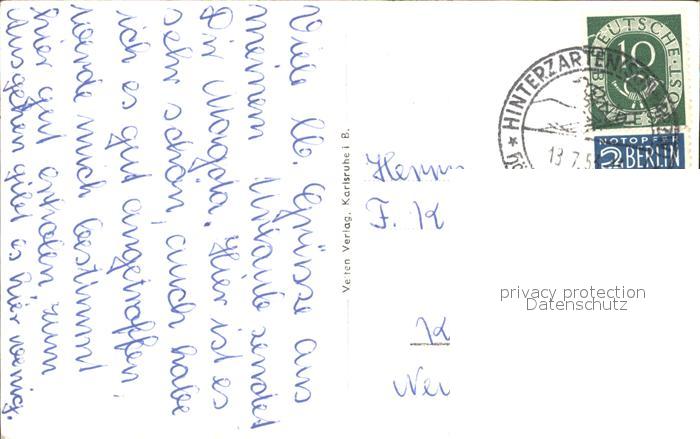 Viele lb. Grüsse aus
meinem Urlaub sendet
Dir Magda. Hier ist es
sehr schön, auch habe
ich es gut angetroffen,
werde mich bestimmt
hier gut erholen zum
Ausgehen gibt es hier wenig.
Verlag, Karlsruhe i. B.
DEUTSCHE POST
10
HINTERZARTEN
13.7.5
NOTOPFER
2 BERLIN
Herrn
F. K
K
privacy protection
Datenschutz